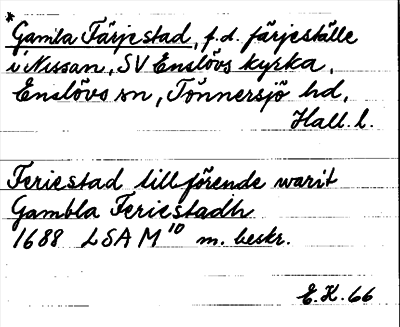 *
Gamla Färjestad, f.d. färjeställe
i Nissan, SV Enslövs kyrka,
Enslövs sn, Tönnersjö hd,
Hall. l.
Feriestad tillförende warit
Gambla Feriestadh
1688 LSA M¹⁰ m. beskr.
E.H. 66